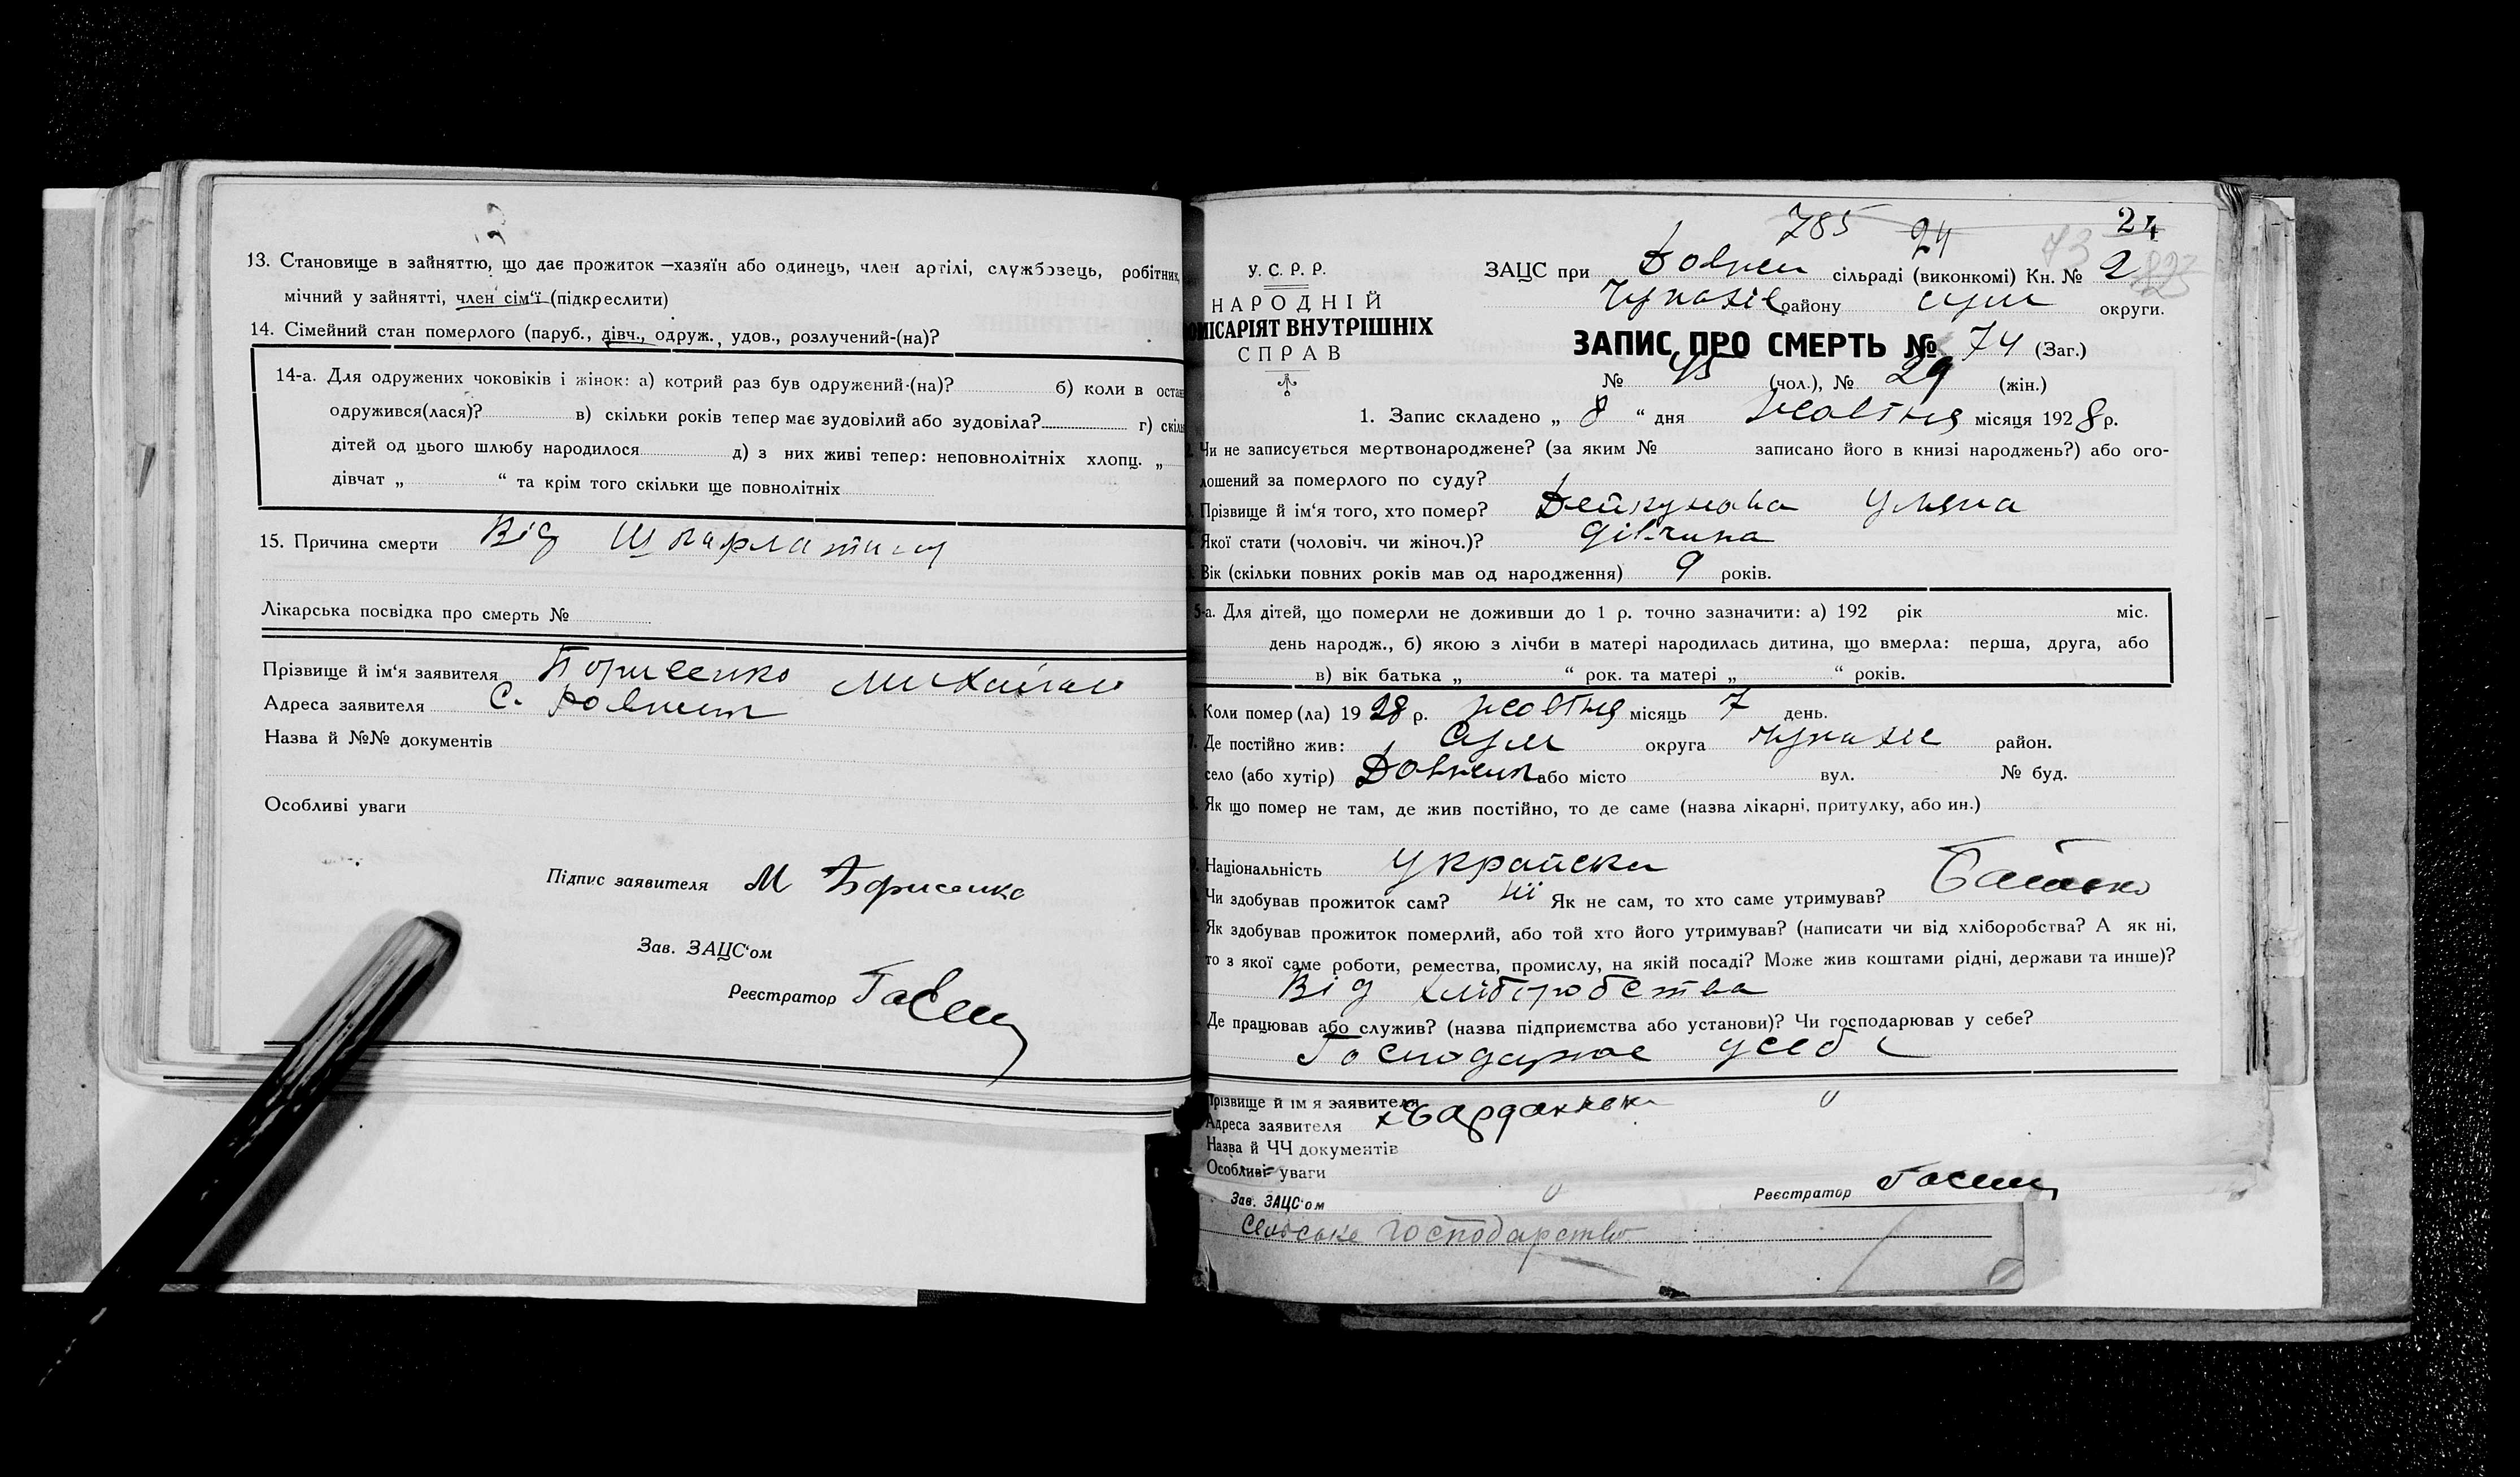 13. Становище в зайняттю, що дає прожиток —хазяїн або одинець, член артілі, службовець, робітник,
мічний у зайнятті, член сім'ї (підкреслити)
14. Сімейний стан померлого (паруб., дівч., одруж., удов., розлучений-(на)?
14-а. Для одружених чоковіків і жінок: а) котрий раз був одружений-(на)? б) коли в остан
одружився(лася)? в) скільки років тепер має зудовілий або зудовіла? г) скіль
дітей од цього шлюбу народилося д) з них живі тепер: неповнолітніх хлопц. „
дівчат „ “ та крім того скільки ще повнолітніх
15. Причина смерти Від Шкарлатини
Лікарська посвідка про смерть №
Прізвище й ім'я заявителя Борисенко Михайло
Адреса заявителя С.
Назва й №№ документів
Особливі уваги
Підпис заявителя М Борисенко
Зав. ЗАЦС'ом
Реєстратор
785 24 24
У. С. Р. Р.
НАРОДНІЙ
ОМІСАРІЯТ ВНУТРІШНІХ
СПРАВ
ЗАЦС при сільраді (виконкомі) Кн. № 2
району Сум округи.
ЗАПИС ПРО СМЕРТЬ № 74 (Заг.)
№ 45 (чол.), № 29 (жін.)
1. Запис складено „ 8 “ дня жовтня місяця 1928 р.
Чи не записується мертвонароджене? (за яким № записано його в книзі народжень?) або ого-
лошений за померлого по суду?
Прізвище й ім'я того, хто помер? Дейкунова Уляна
Якої стати (чоловіч. чи жіноч.)? дівчина
Вік (скільки повних років мав од народження) 9 років.
5-а. Для дітей, що померли не доживши до 1 р. точно зазначити: а) 192 рік міс.
день народж., б) якою з лічби в матері народилась дитина, що вмерла: перша, друга, або
в) вік батька „ “ рок. та матері „ “ років.
Коли помер (ла) 1928 р. жовтня місяць 7 день.
Де постійно жив: Сум округа район.
село (або хутір) або місто вул. № буд.
Як що помер не там, де жив постійно, то де саме (назва лікарні, притулку, або ин.)
Національність Українска
Чи здобував прожиток сам? Ні Як не сам, то хто саме утримував? Батько
Як здобував прожиток померлий, або той хто його утримував? (написати чи від хліборобства? А як ні,
то з якої саме роботи, ремества, промислу, на якій посаді? Може жив коштами рідні, держави та инше)?
Від хліборобства
Де працював або служив? (назва підприємства або установи)? Чи господарював у себе?
Господарює усебе
Прізвище й ім я заявителя
Адреса заявителя
Назва й ЧЧ документів
Особливі уваги
Зав. ЗАЦС'ом Реєстратор
сельське господарство